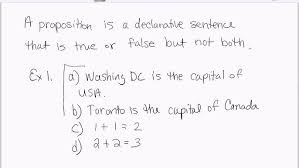 A proposition is a declarative sentence
that is true or false but not both.
Ex 1. a) Washing DC is the capital of
USA.
b) Toronto is the capital of Canada
c) 1+1=2
d) 2+2=3